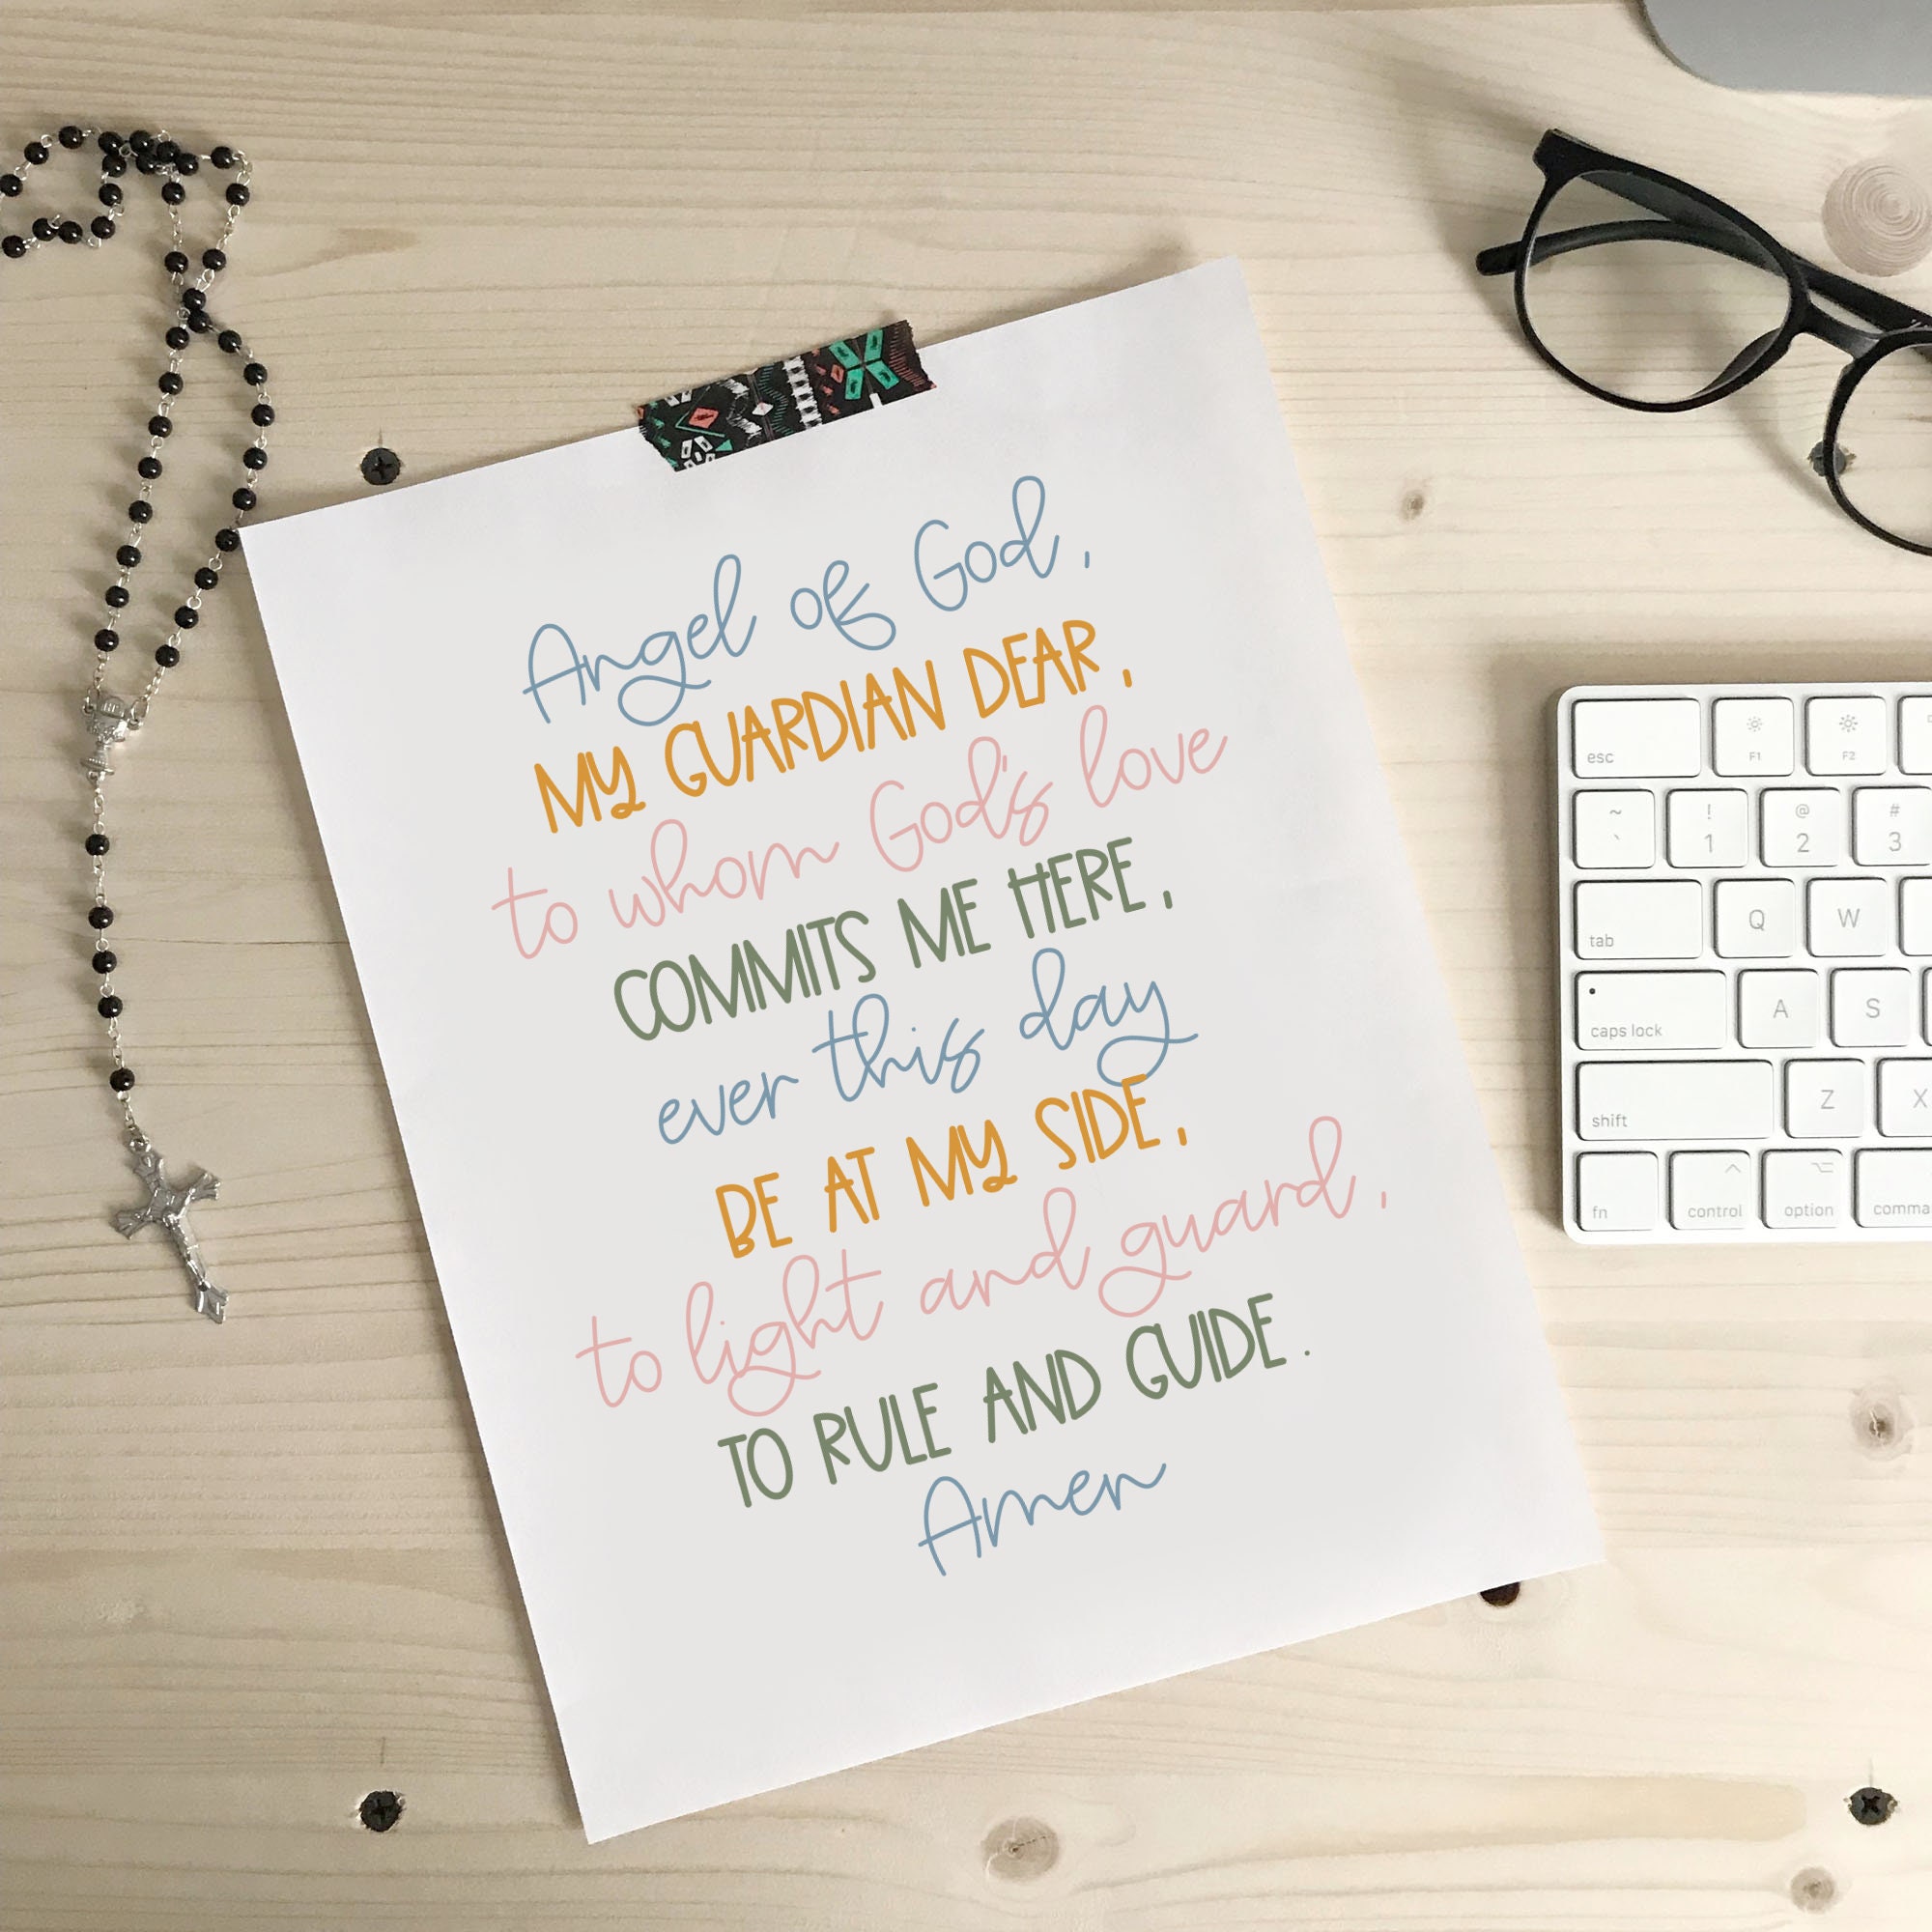 Angel of God,
MY GUARDIAN DEAR,
to whom God's love
COMMITS ME HERE,
ever this day
BE AT MY SIDE,
to light and guard,
TO RULE AND GUIDE.
Amen
esc F1 F2
~ ` ! 1 @ 2 # 3
tab Q W
caps lock A S
shift Z X
fn control option comma